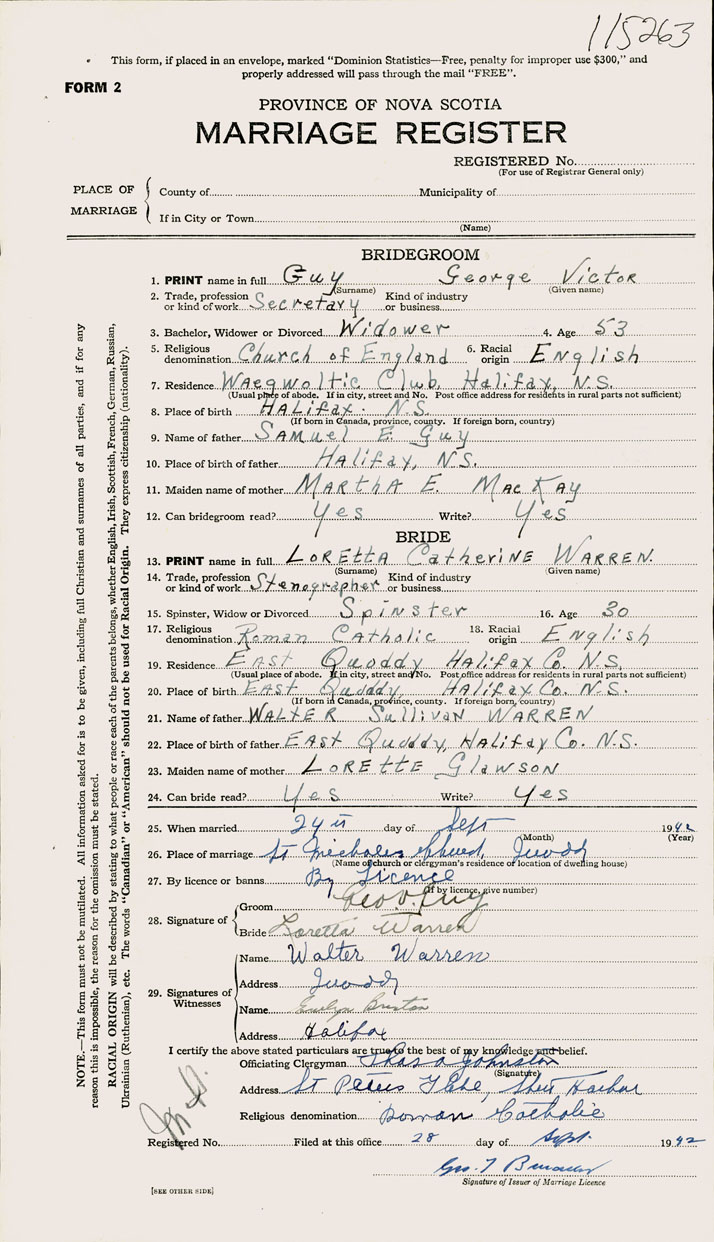 115263
This form, if placed in an envelope, marked "Dominion Statistics—Free, penalty for improper use $300," and
properly addressed will pass through the mail "FREE".
FORM 2
PROVINCE OF NOVA SCOTIA
MARRIAGE REGISTER
REGISTERED No.
(For use of Registrar General only)
PLACE OF MARRIAGE
County of Municipality of
If in City or Town
(Name)
BRIDEGROOM
1. PRINT name in full Guy George Victor
(Surname) (Given name)
2. Trade, profession or kind of work Secretary Kind of industry or business
3. Bachelor, Widower or Divorced Widower 4. Age 53
5. Religious denomination Church of England 6. Racial origin English
7. Residence Waegwoltic Club, Halifax, N.S.
(Usual place of abode. If in city, street and No. Post office address for residents in rural parts not sufficient)
8. Place of birth Halifax. N.S.
(If born in Canada, province, county. If foreign born, country)
9. Name of father Samuel E. Guy
10. Place of birth of father Halifax, N.S.
11. Maiden name of mother Martha E. MacKay
12. Can bridegroom read? Yes Write? Yes
BRIDE
13. PRINT name in full Loretta Catherine Warren.
(Surname) (Given name)
14. Trade, profession or kind of work Stenographer Kind of industry or business
15. Spinster, Widow or Divorced Spinster 16. Age 30
17. Religious denomination Roman Catholic 18. Racial origin English
19. Residence East Quoddy Halifax Co. N.S.
(Usual place of abode. If in city, street and No. Post office address for residents in rural parts not sufficient)
20. Place of birth East Quoddy, Halifax Co. N.S.
(If born in Canada, province, county. If foreign born, country)
21. Name of father Walter Sullivan Warren
22. Place of birth of father East Quoddy, Halifax Co. N.S.
23. Maiden name of mother Lorette Glawson
24. Can bride read? Yes Write? Yes
25. When married 24 day of Sept 1942
(Month) (Year)
26. Place of marriage St
(Name of church or clergyman's residence or location of dwelling house)
27. By licence or banns By Licence
(If by licence, give number)
28. Signature of
Groom Geo V. Guy
Bride Loretta Warren
29. Signatures of Witnesses
Name Walter Warren
Address
Name Evelyn
Address Halifax
I certify the above stated particulars are true to the best of my knowledge and belief.
Officiating Clergyman Johnston
(Signature)
Address St Peters Harbor
Religious denomination Roman Catholic
Registered No. Filed at this office 28 day of Sept. 1942
Geo. T
Signature of Issuer of Marriage Licence
[SEE OTHER SIDE]
NOTE.—This form must not be mutilated. All information asked for is to be given, including full Christian and surnames of all parties, and if for any
reason this is impossible, the reason for the omission must be stated.
RACIAL ORIGIN will be described by stating to what people or race each of the parents belongs, whether English, Irish, Scottish, French, German, Russian,
Ukrainian (Ruthenian), etc. The words "Canadian" or "American" should not be used for Racial Origin. They express citizenship (nationality).